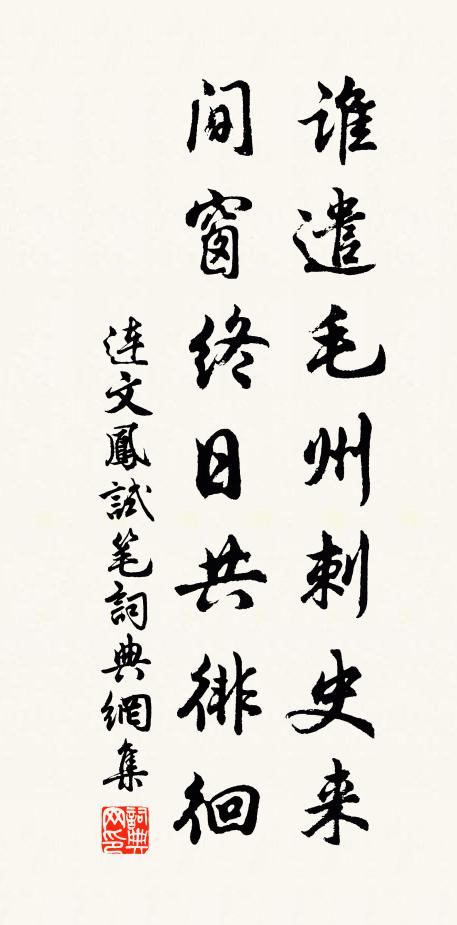 谁遣毛州刺史来
间窗终日共徘徊
连文鳳試笔詞典網集
詞典网印